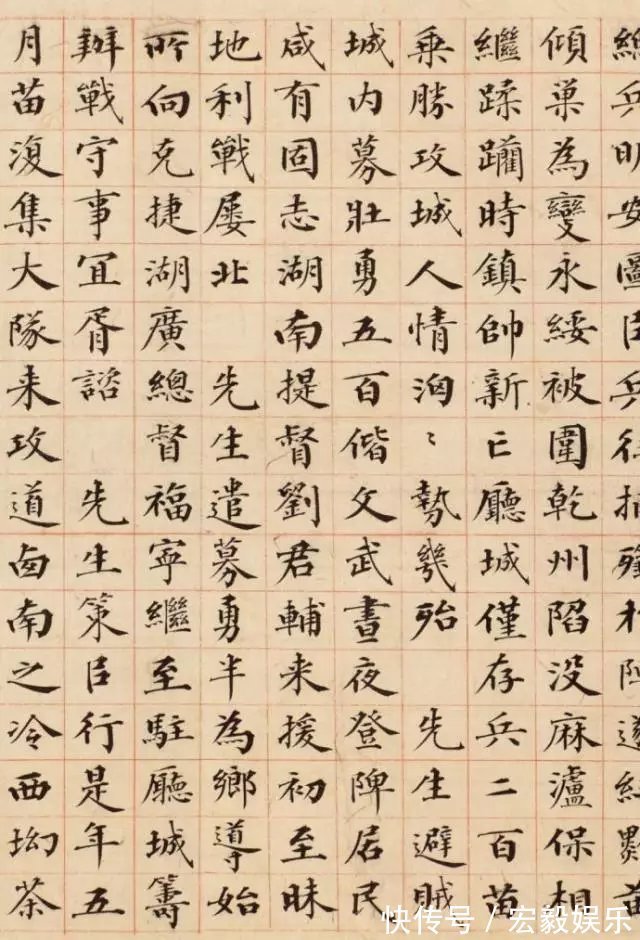 總兵明安圖㠯兵往捕
傾巢為變永綏被圍乾州陷没麻瀘保相
繼蹂躪時鎮帥新亡廳城僅存兵二百苗
乗勝攻城人情洶〻勢幾殆 先生避賊
城内募壯勇五百偕文武晝夜登陴居民
咸有固志湖南提督劉君輔来援初至昧
地利戰屡北 先生遣募勇半為鄉導始
所向克捷湖廣總督福寧繼至駐廳城籌
辦戰守事宜胥諮 先生策㠯行是年五
月苗復集大隊来攻道南之冷西坳茶
快传号/宏毅娱乐